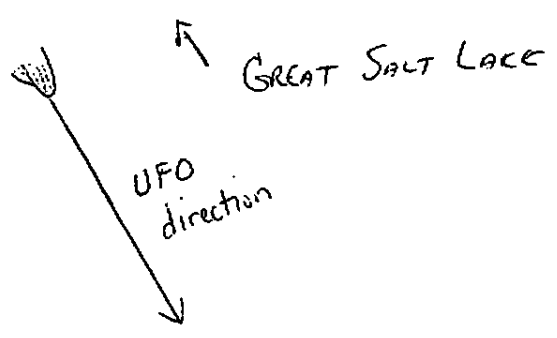 GREAT SALT LAKE
UFO
direction